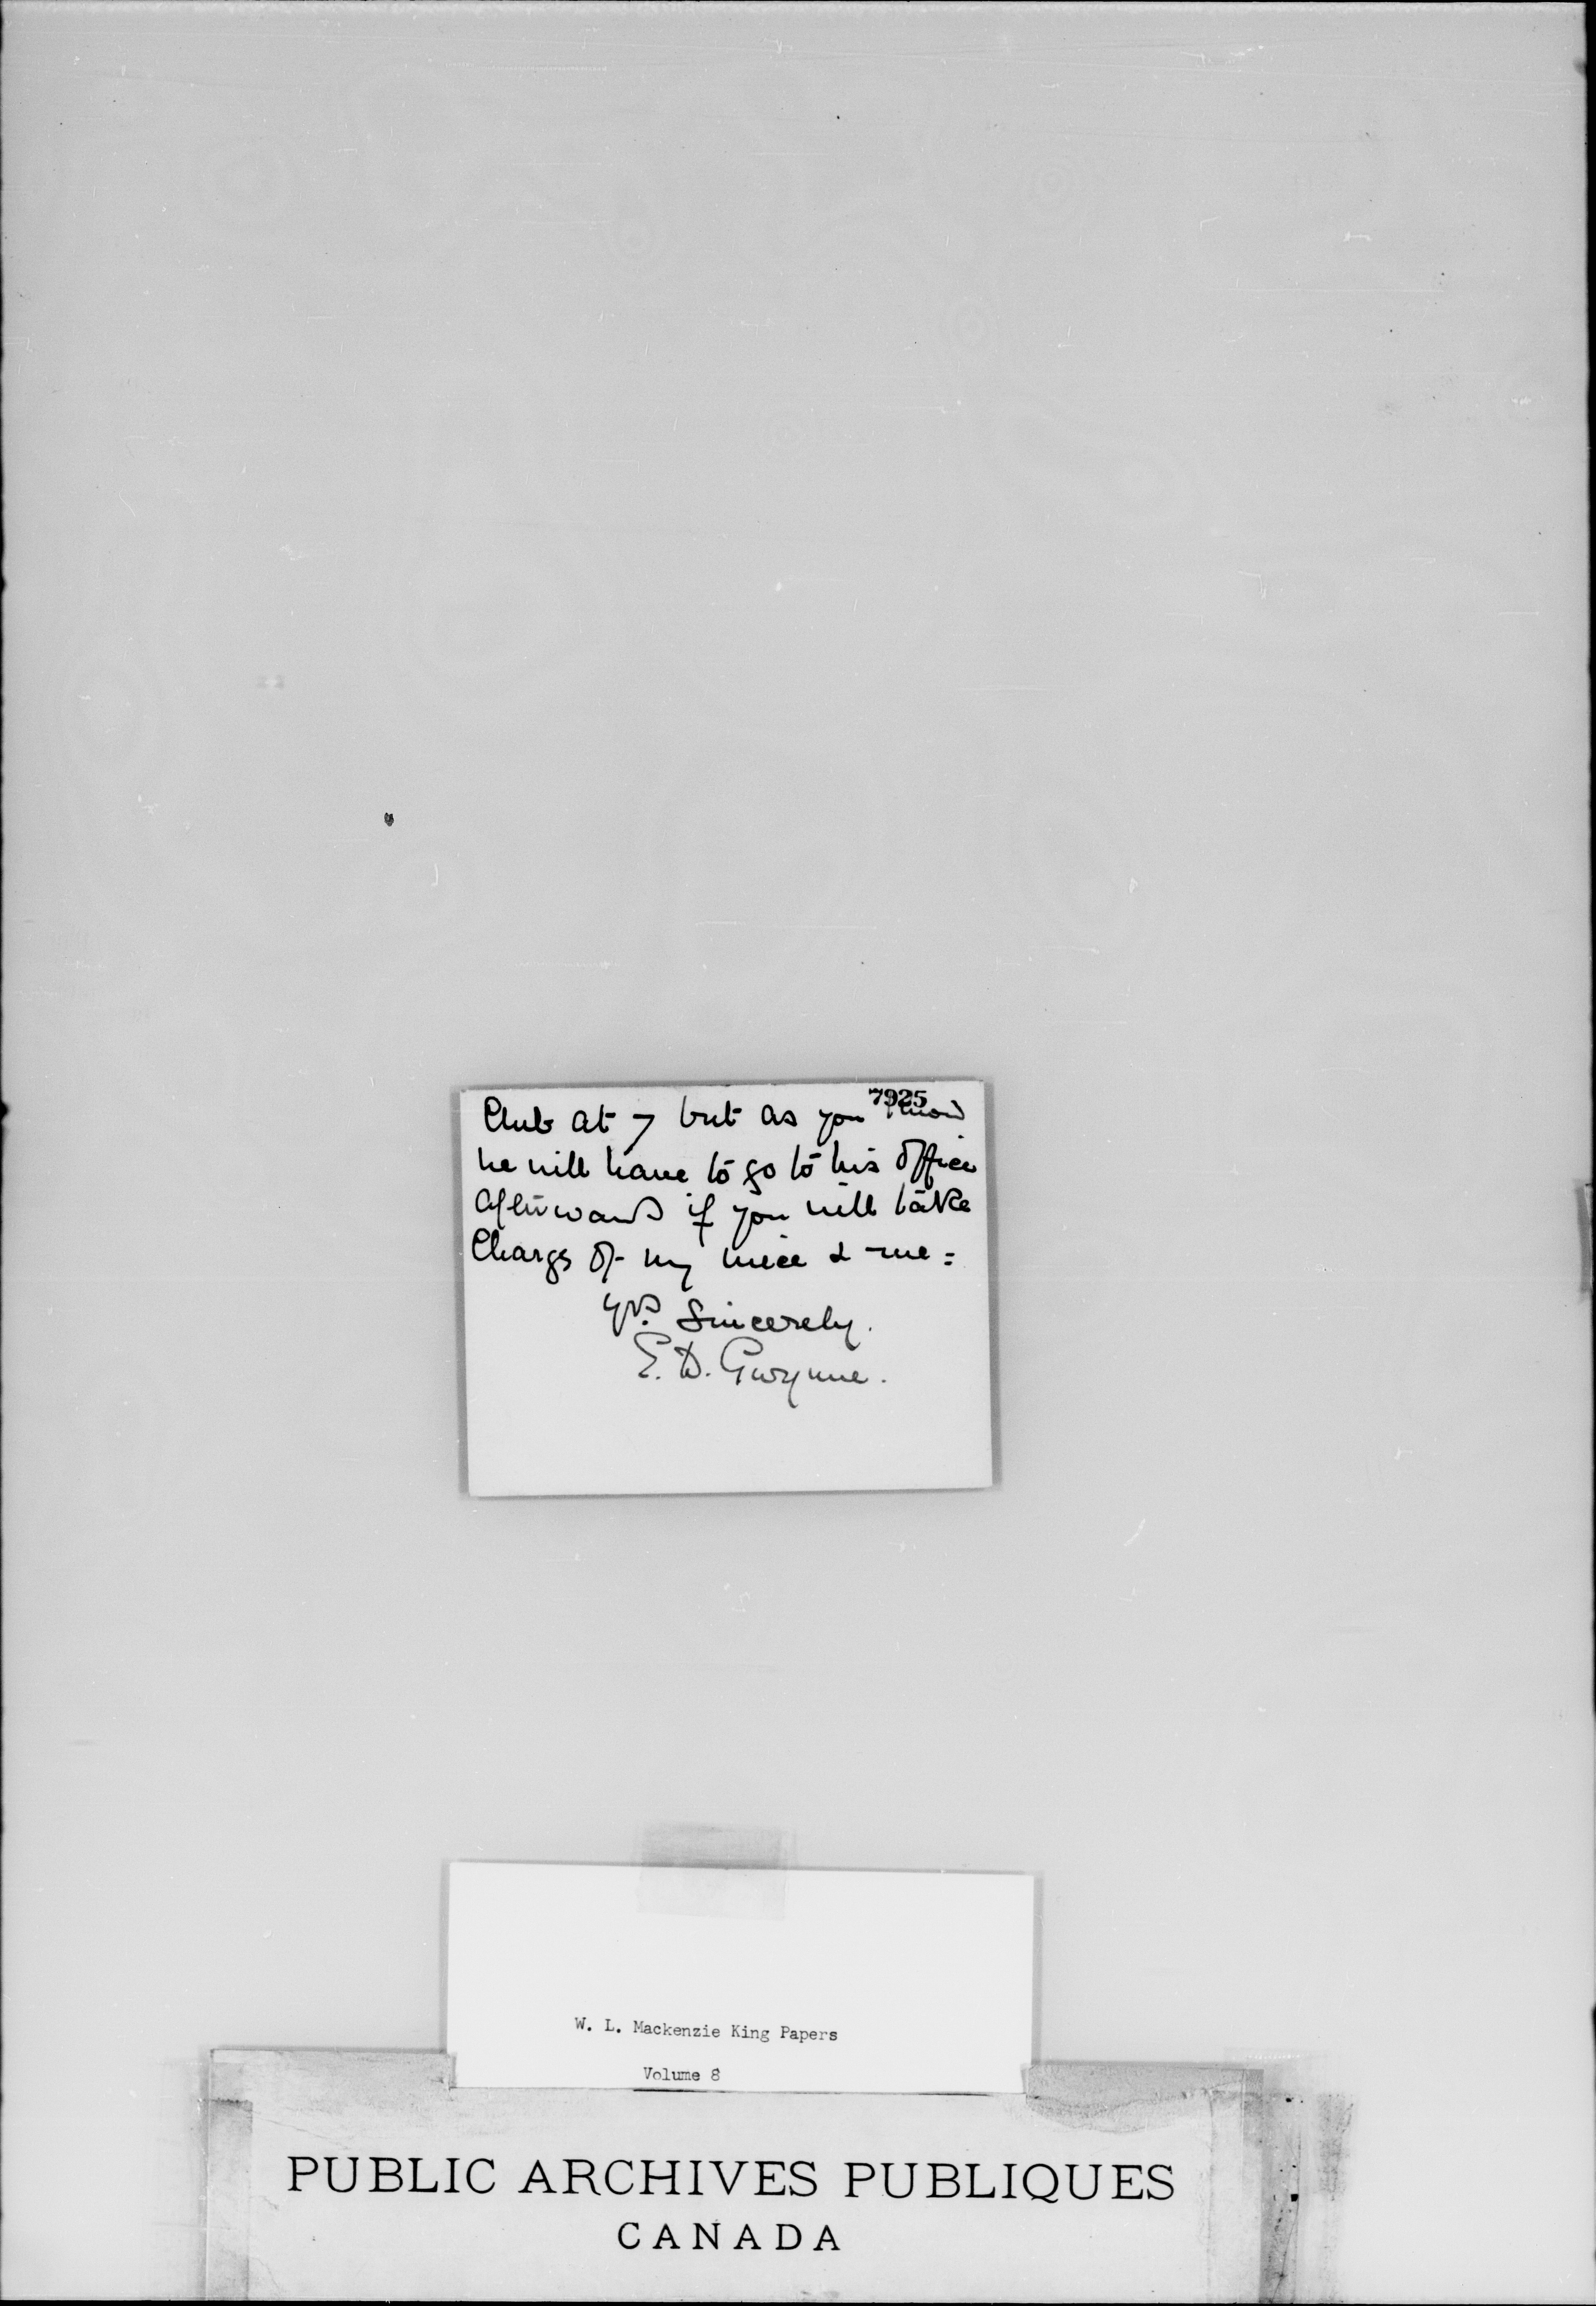 7925
Club at 7 but as you know
he will have to go to his office
afterwards if you will take
Charge of my niece & me =
Yrs. Sincerely.
E. D. Gwynne.
W. L. Mackenzie King Papers
Volume 8
PUBLIC ARCHIVES PUBLIQUES
CANADA